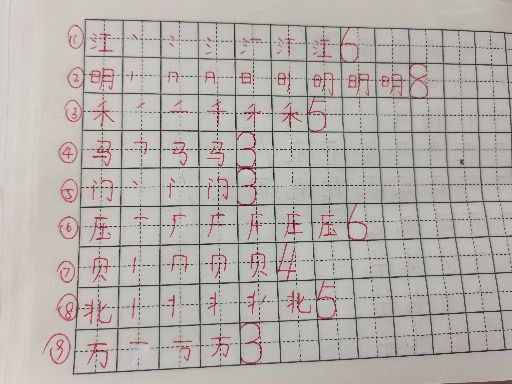 ① 江 丶 冫 氵 汀 江 江 6
② 明 丨 冂 日 日 明 明 明 8
③ 禾 丿 二 千 禾 禾 5
④ 马 ㇕ 马 马 3
⑤ 门 丶 门 3
⑥ 压 一 厂 压 压 6
⑦ 贝 丨 冂 贝 贝 4
⑧ 北 丨 北 5
⑨ 万 一 万 3